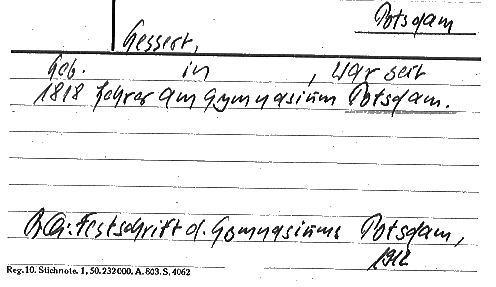 Potsdam
Gessert,
Geb. in , war seit
1818 Lehrer am Gymnasium Potsdam.
Festschrift d. Gymnasiums Potsdam,
1912
Reg. 10. Stichnote. 1, 50. 232000. A. 803. S. 4062